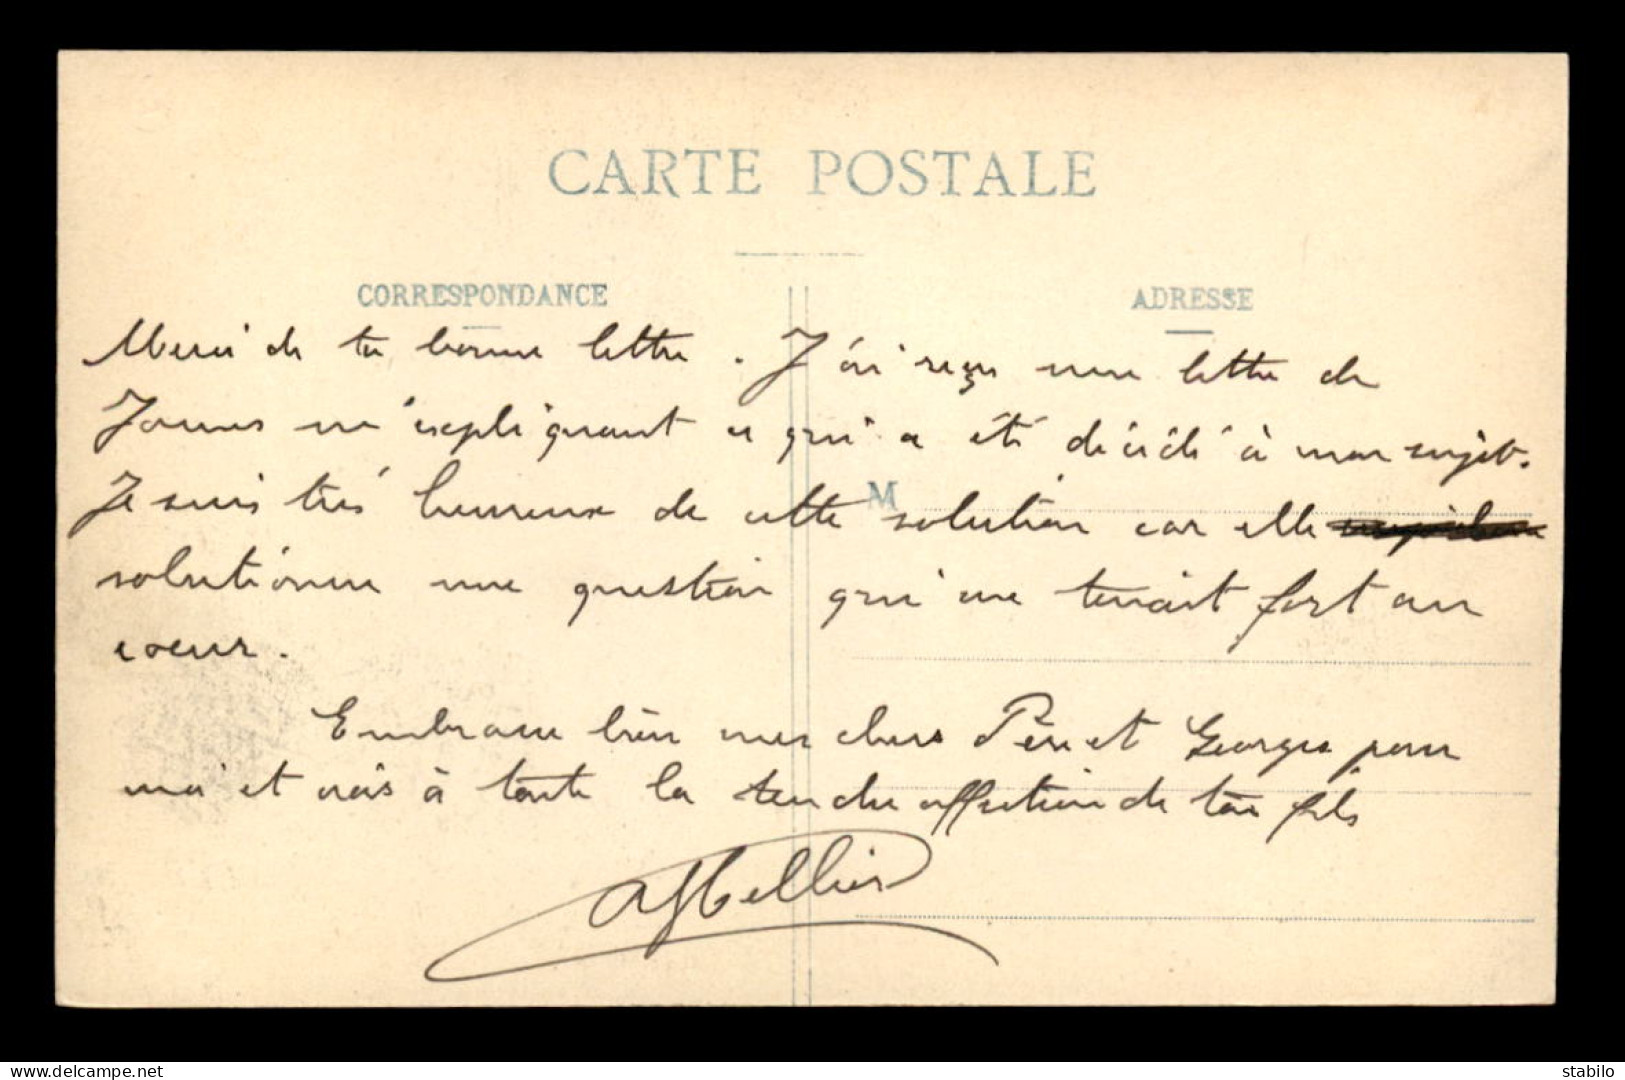 CARTE POSTALE
CORRESPONDANCE
ADRESSE
Merci de ta bonne lettre. J'ai reçu une lettre de
m'expliquant ce qui a été décidé à mon sujet.
Je suis très heureux de cette solution car elle
M
solutionne une question qui me tenait fort au
coeur.
Embrasse bien mes chers Père et Georges pour
moi et crois à toute la tendre affection de ton fils
delcampe.net
stabilo